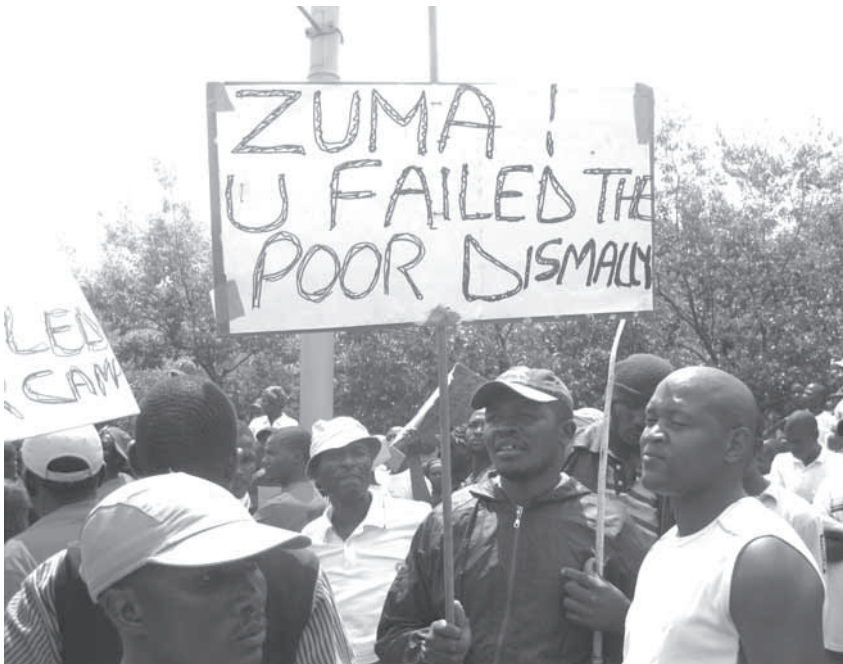 ZUMA !
U FAILED THE
POOR DISMALLY
LED
CAM